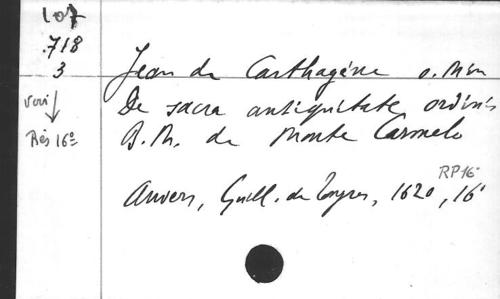 107
.718
3
voir
Rés 16º
Jean de Carthagène o. Min
De sacra antiquitate ordinis
B.M. de Monte Carmelo
RP16
Anvers, Guill. de Tongres, 1620, 16º